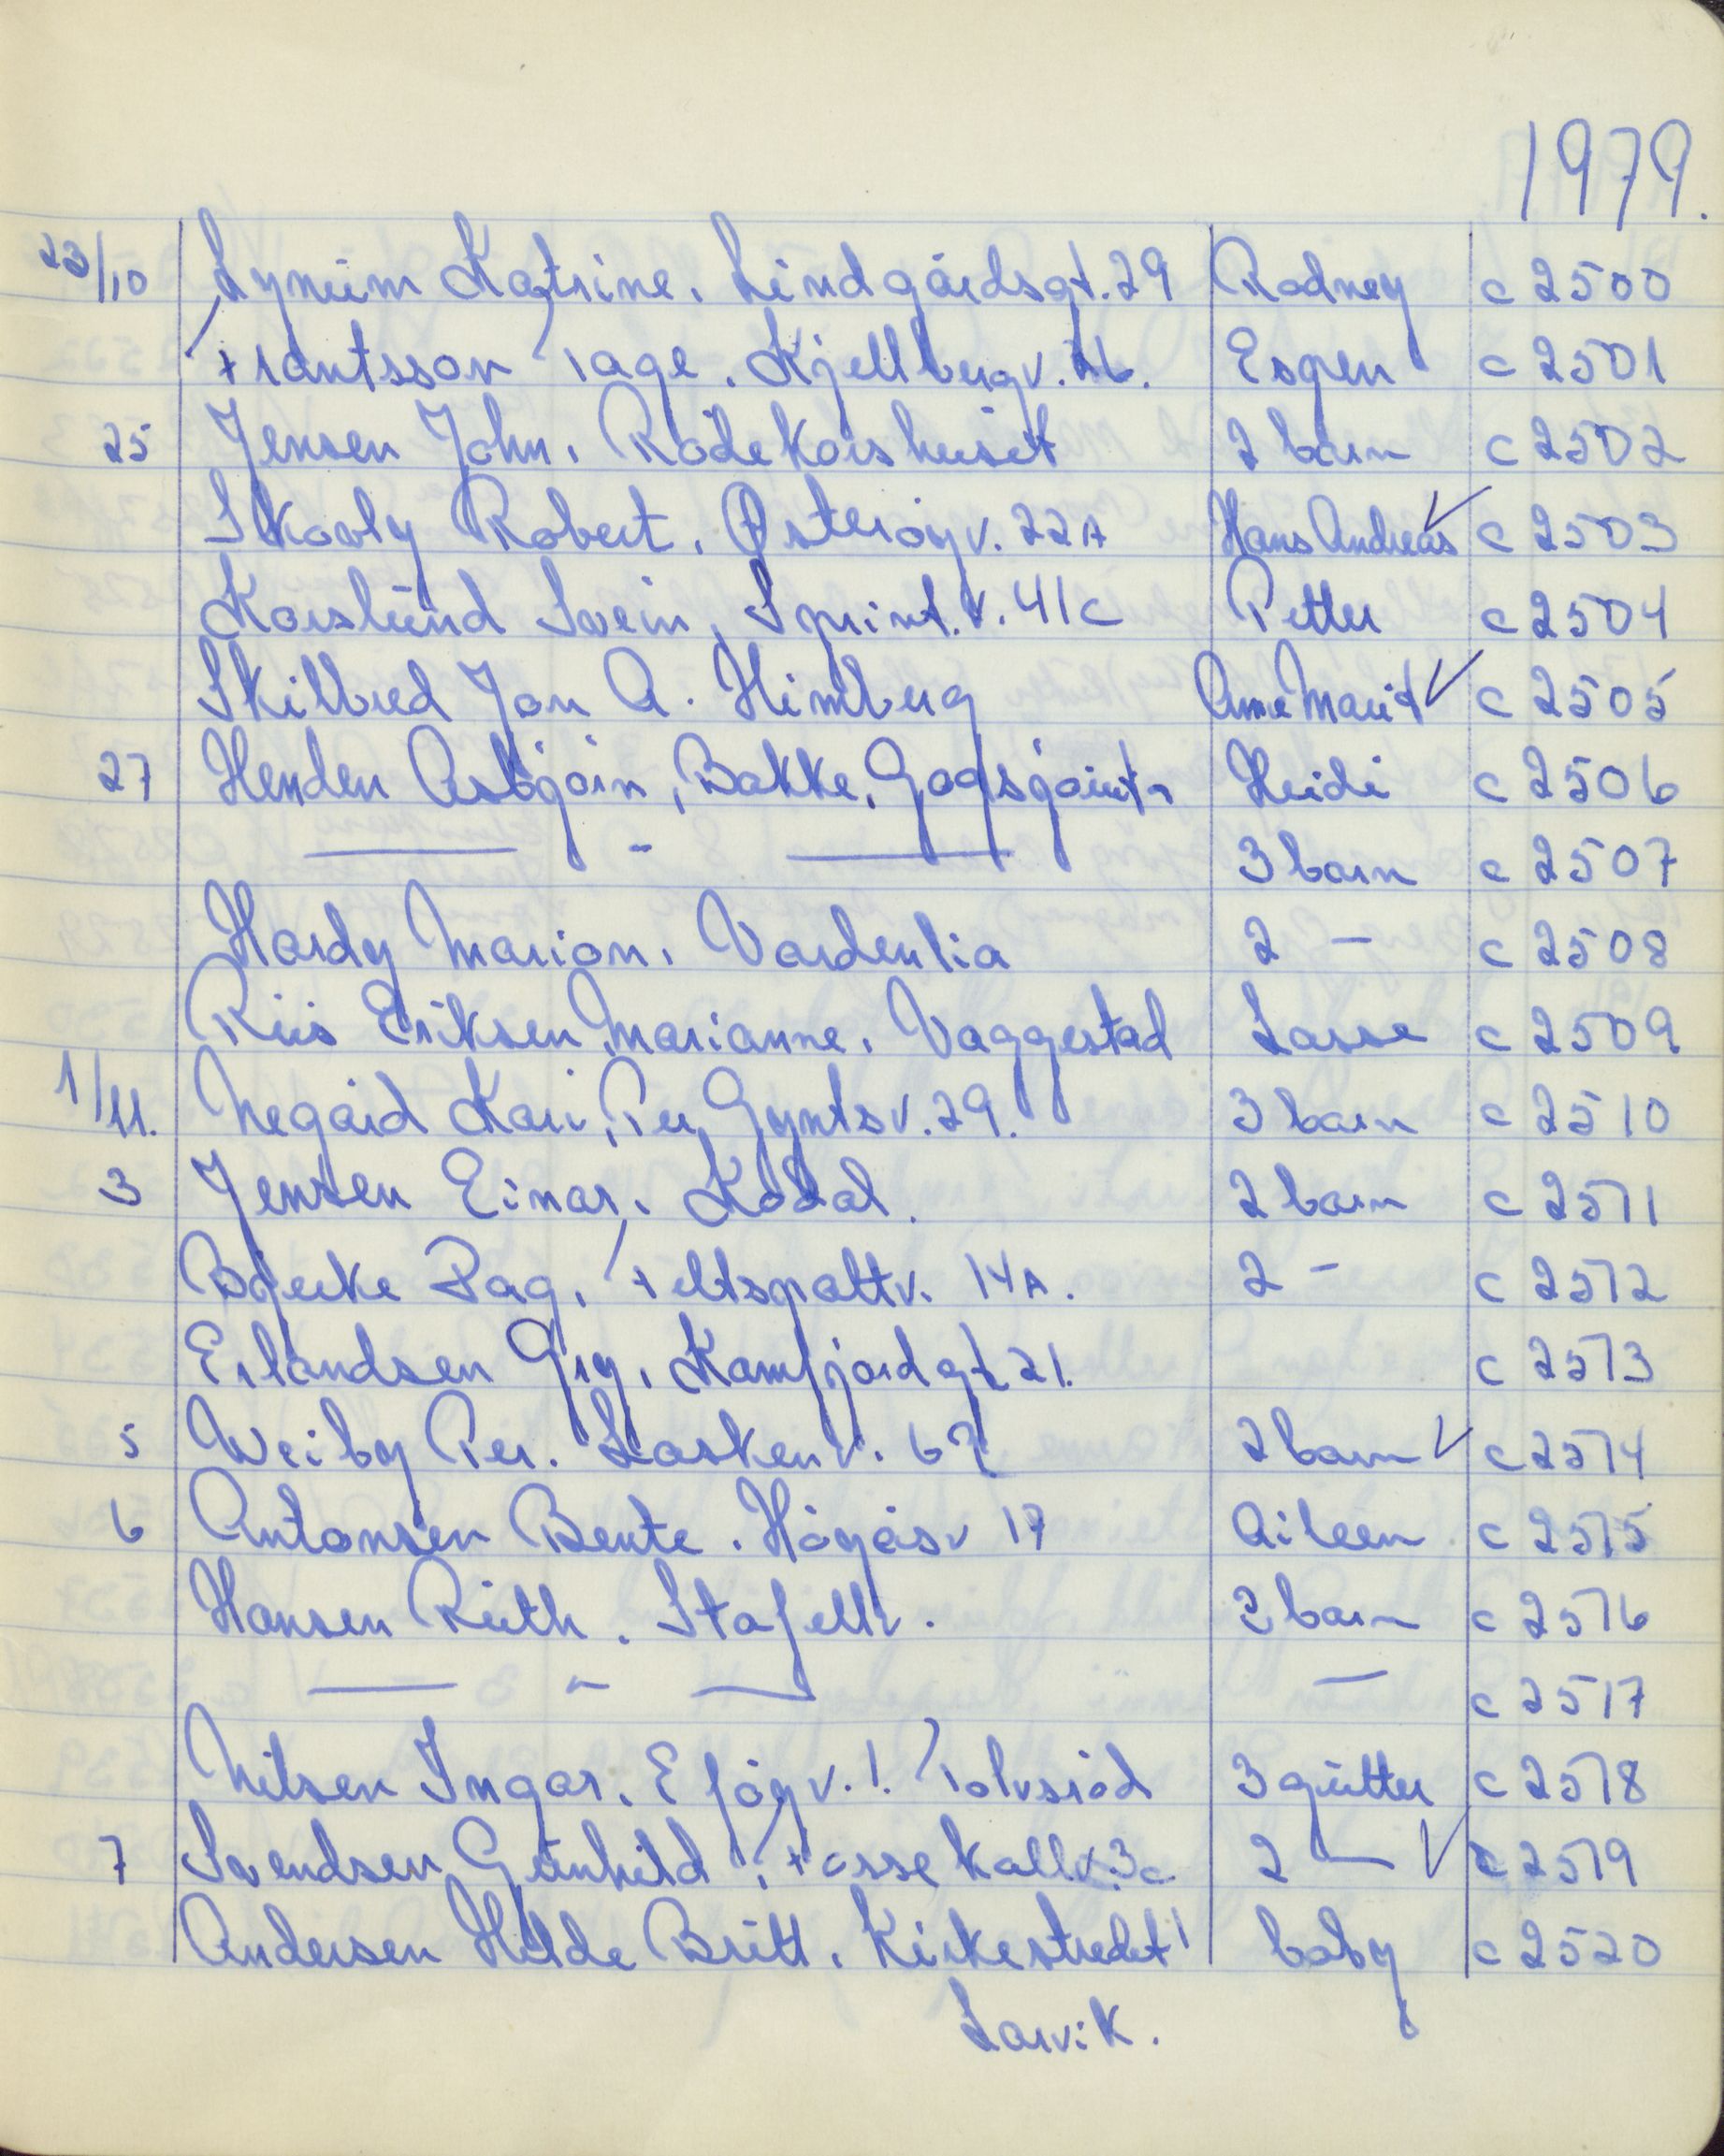 1979.
23/10 Lynum Katrine. Lindgårdsgt. 29 Rodney c 2500
Frantsson Tage. Kjellbergv. Espen c 2501
25 Jensen John. Rødekorshuset 2 barn c 2502
Skovly Robert. Østerøyv. 22A Hans Andreas ✓ c 2503
Korslund Svein, Sprint.v. 41c Petter c 2504
Skilbred Jon A. Himberg Anne Marit ✓ c 2505
27 Henden Asbjørn, Bakke, Heidi c 2506
— " — 3 barn c 2507
Hardy Marion. Vardenlia 2 — c 2508
Riis Eriksen Marianne. Vaggestad Lasse c 2509
1/11. Negård Kari, Per Gyntsv. 29. 3 barn c 2510
3 Jensen Einar. Kodal. 2 barn c 2511
Bjerke Dag. Feltspattv. 14A. 2 - c 2512
Erlandsen Gry. Kamfjordgt 21. c 2513
5 Weiby Per. Laskenv. 67 2 barn ✓ c 2514
6 Antonsen Bente. Högåsv 17 Aileen c 2515
Hansen Ruth. Stafettv. 2 barn c 2516
— " — — c 2517
Nilsen Ingar. Eföyv. 1. Tolvsrød 3 gutter c 2518
7 Svendsen Gunhild, Fossekallv. 3c 2 — ✓ c 2519
Andersen Hilde Britt. Kirkestredet 1 baby c 2520
Larvik.